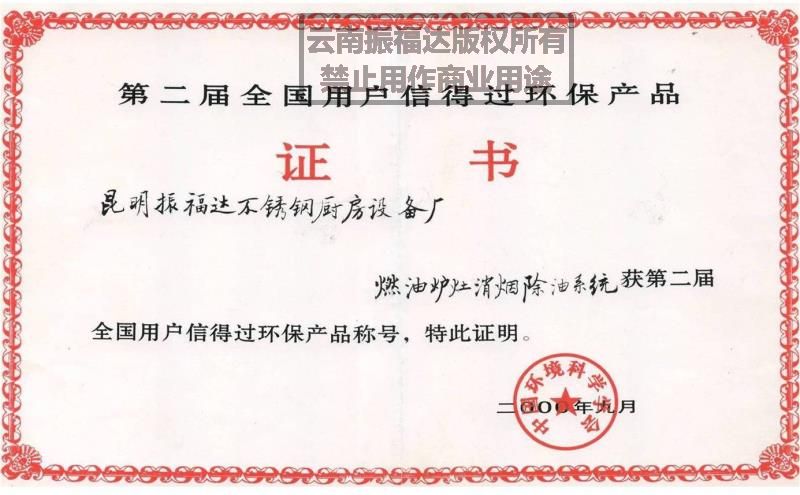 云南振福达版权所有
禁止用作商业用途
第二届全国用户信得过环保产品
证书
昆明振福达不锈钢厨房设备厂
燃油炉灶消烟除油系统获第二届
全国用户信得过环保产品称号，特此证明。
中国环境科学学会
二000年九月